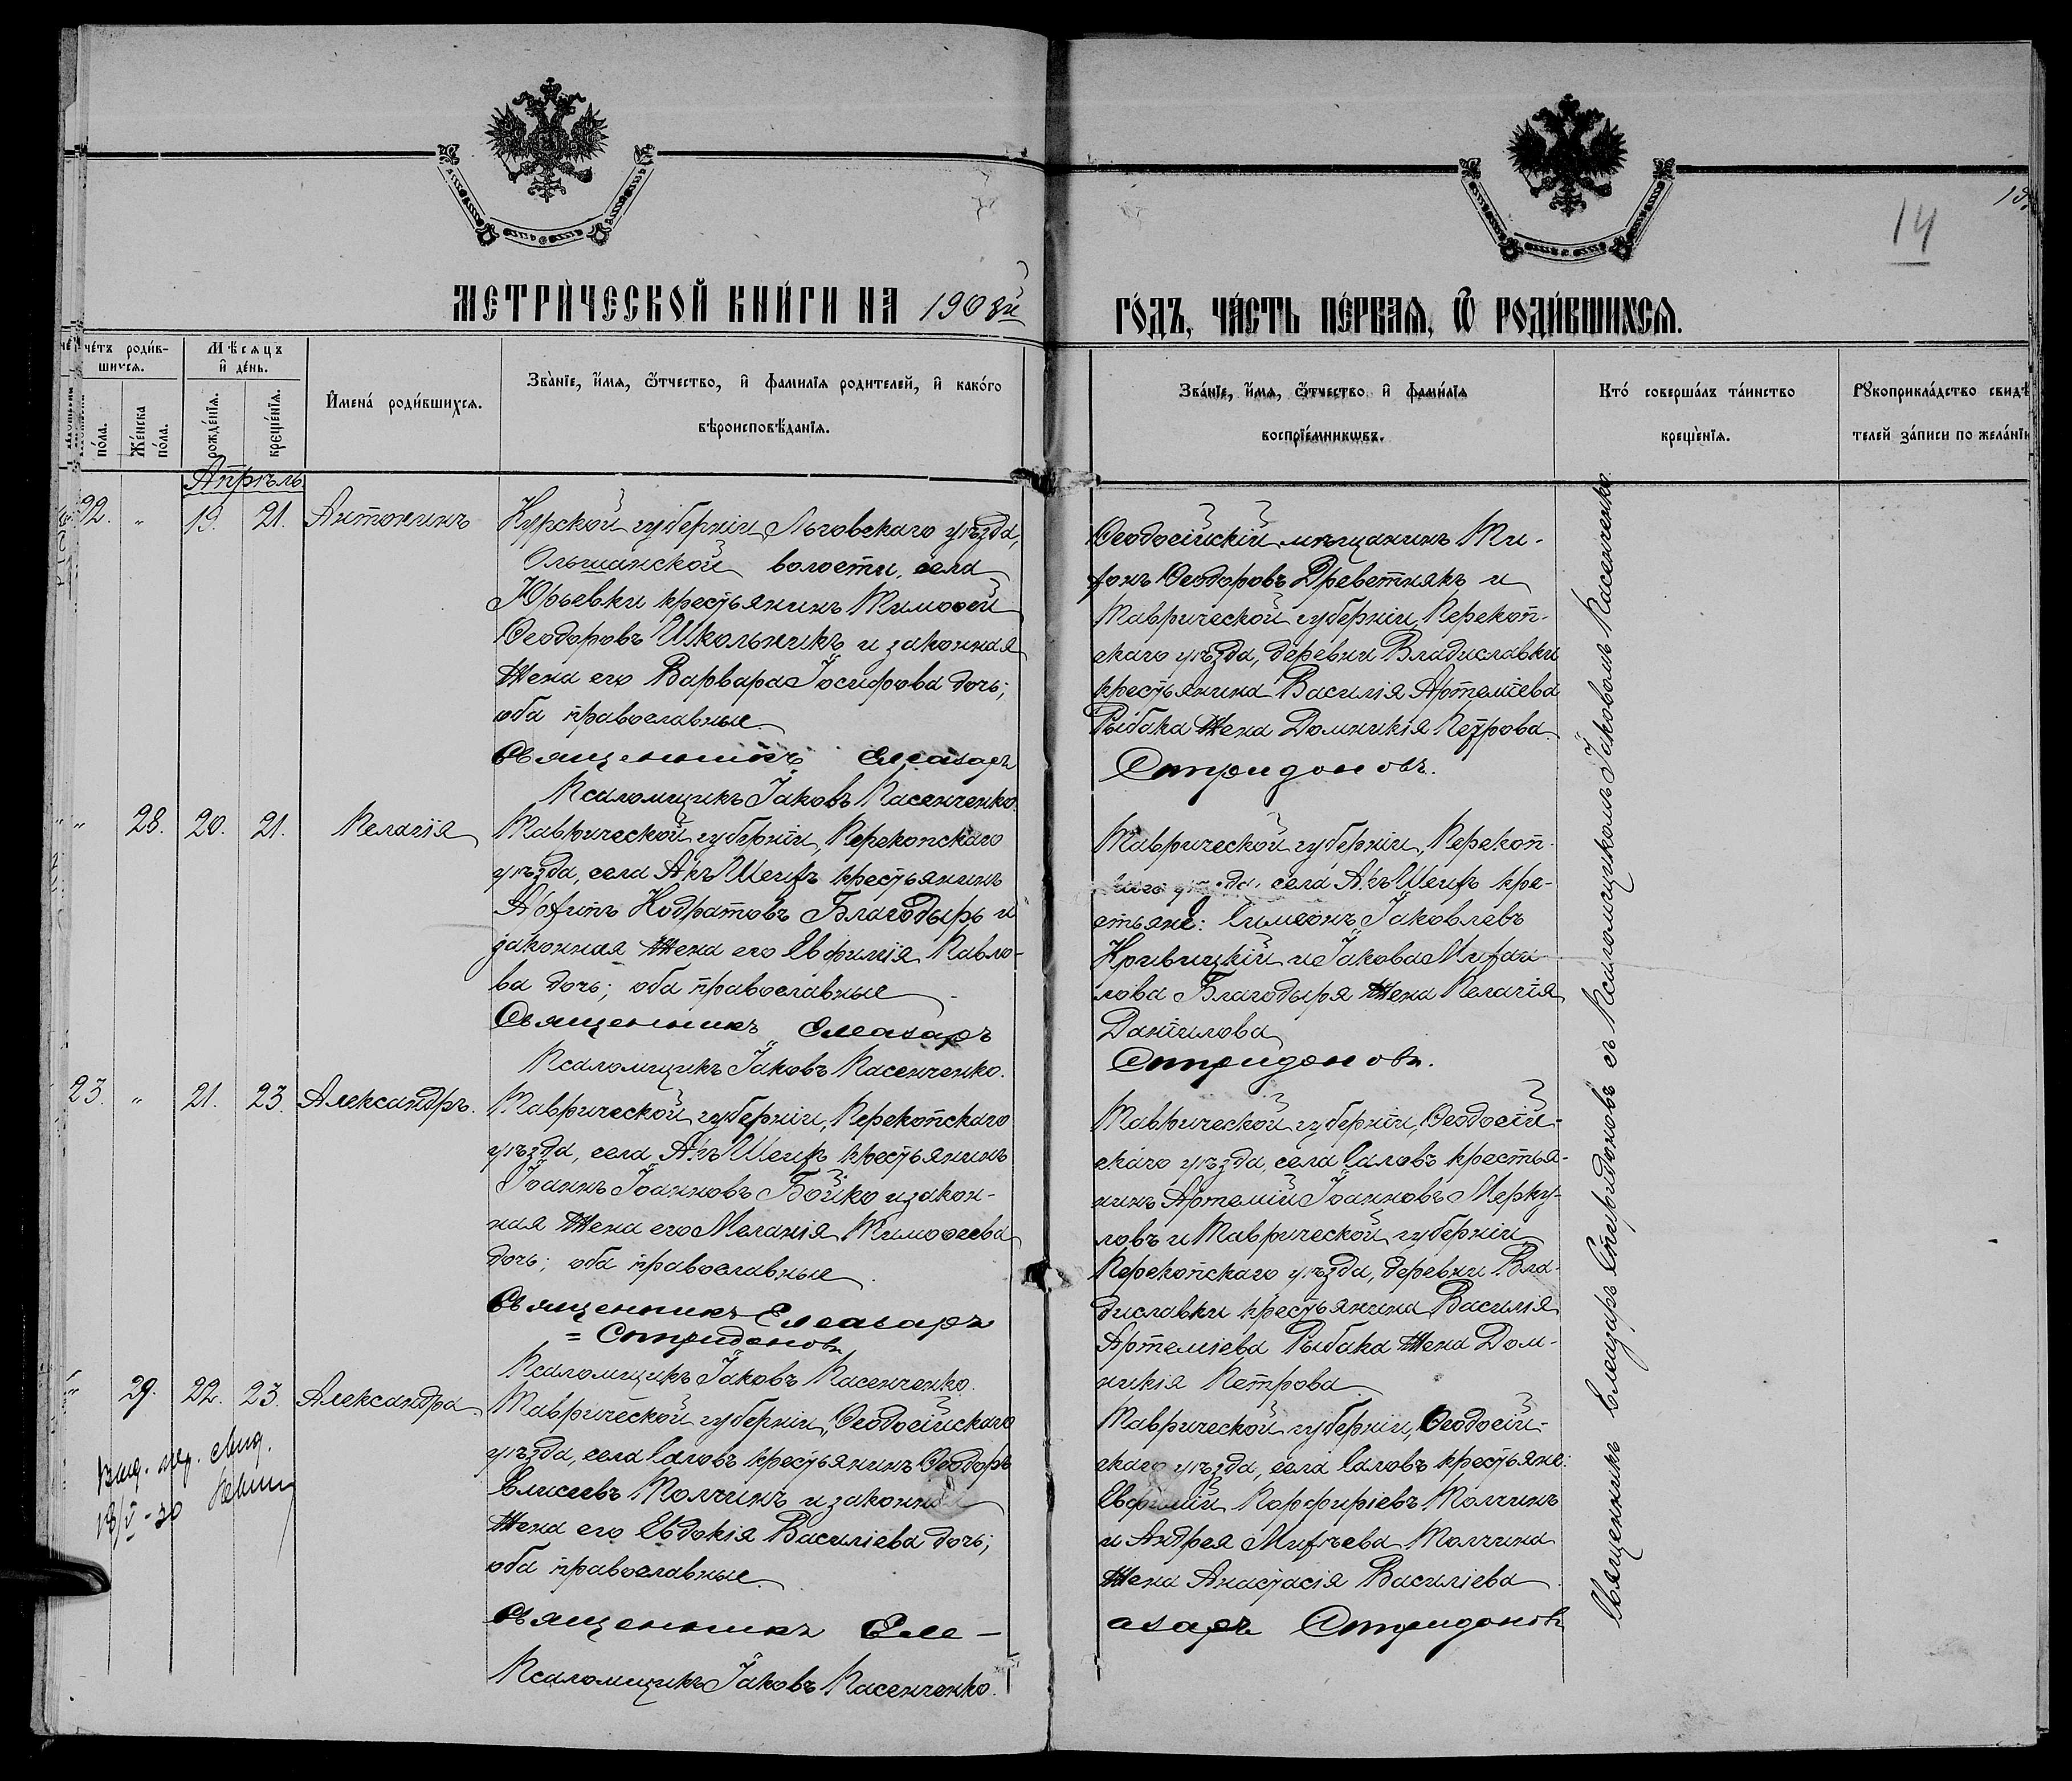 14
МЕТРИ́ЧЕСКОЙ КНИ́ГИ НА 1903й ГО́ДЪ, ЧА́СТЬ ПЕ́РВАЯ, Ѿ РОДИ́ВШИХСЯ.
че́тъ роди́в-
шихся.
по́ла.
Же́нска
по́ла.
Мѣсяцъ
и де́нь.
рожде́нїя.
креще́нїя.
Имена́ роди́вшихся.
Зва́нїе, и́мя, ѻ́тчество, и фамилїя родителей, и како́го
вѣроисповѣ́данїя.
Зва́нїе, и́мя, ѻ́тчество и фами́лїя
воспрїе́мниковъ.
Кто́ соверша́лъ та́инство
креще́нїя.
Рꙋкоприкла́дство свидѣ
телей за́писи по жела́нїю
Апрѣль
22. " 19. 21. Антонинъ
Курской губерніи, Льговскаго уѣзда,
Ольшанской волости, села
Юрьевки крестьянинъ Тимоѳей
Ѳеодоровъ Школьникъ и законная
жена его Варвара Іосифова дочь;
оба православные
Священникъ Елеазаръ
Псаломщикъ Іаковъ Пасенченко.
Ѳеодосійскій мѣщанинъ Ти-
хонъ Ѳеодоровъ Древетнякъ и
Таврической губерніи, Перекоп-
скаго уѣзда, деревни Владиславки
крестьянина Василія Артеміева
Рыбака жена Домникія Петрова
Спиридоновъ.
" 28. 20. 21. Пелагія
Таврической губерніи, Перекопскаго
уѣзда, села Акъ Шеихъ крестьянинъ
Архипъ Кодратовъ Благодырь и
законная жена его Евфимія Павло-
ва дочь; оба православные
Священникъ Елеазаръ
Псаломщикъ Іаковъ Пасенченко.
Таврической губерніи, Перекоп-
скаго уѣзда, села Акъ Шеихъ кре-
стьяне: Симеонъ Іаковлевъ
Кривицкій и Іакова Михаи-
лова Благодыря жена Пелагія
Даніилова
Спиридоновъ.
23. " 21. 23. Александръ.
Таврической губерніи, Перекопскаго
уѣзда, села Акъ Шеихъ крестьянинъ
Іоаннъ Іоанновъ Бойко и закон-
ная жена его Меланія Тимоѳеева
дочь; оба православные
Священникъ Елеазаръ
= Спиридоновъ
Псаломщикъ Іаковъ Пасенченко.
Таврической губерніи, Ѳеодосій-
скаго уѣзда, села Саловъ крестья-
нинъ Артемій Іоанновъ Мерку-
ловъ и Таврической губерніи
Перекопскаго уѣзда, деревни Вла-
диславки крестьянина Василія
Артеміева Рыбака жена Дом-
никія Петрова
" 29. 22. 23. Александра.
Таврической губерніи, Ѳеодосійскаго
уѣзда, села Саловъ крестьянинъ Ѳеодоръ
Елисеевъ Толчинъ и законная
жена его Евдокія Василіева дочь;
оба православные
Священникъ Еле-
Псаломщикъ Іаковъ Пасенченко.
Таврической губерніи, Ѳеодосій-
скаго уѣзда, села Саловъ крестьяне:
Евфимій Порфиріевъ Толчинъ
и Андрея Михѣева Толчина
жена Анастасія Василіева
азаръ Спиридоновъ
Священникъ Елеазаръ Спиридоновъ съ Псаломщикомъ Іаковомъ Пасенченко